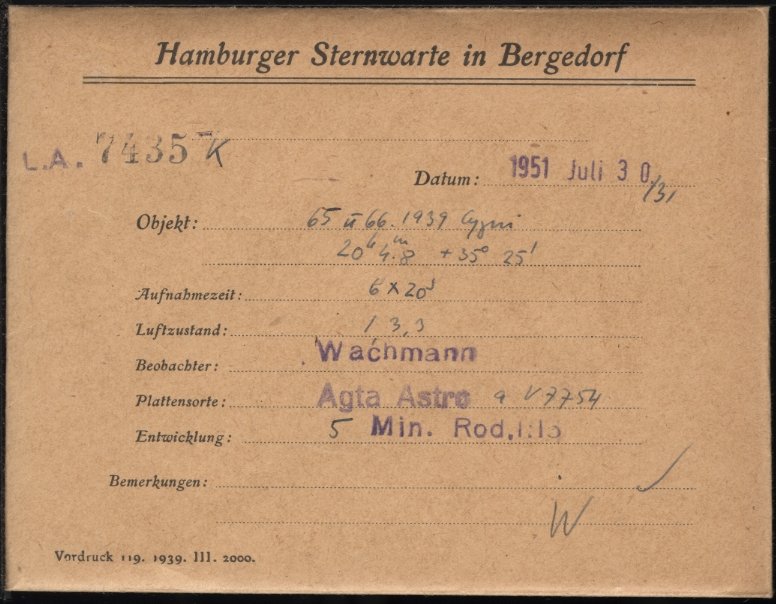 Hamburger Sternwarte in Bergedorf
L.A. 7435 K
Datum: 1951 Juli 30/31
Objekt: 65 u 66.1939 Cygni
20h 4m.8 +35° 25'
Aufnahmezeit: 6 x 20s
Luftzustand: 1 3,3
Beobachter: Wachmann
Plattensorte: Agfa Astro a V7754
Entwicklung: 5 Min. Rod.1:15
Bemerkungen:
W
Vordruck 119. 1939. III. 2000.